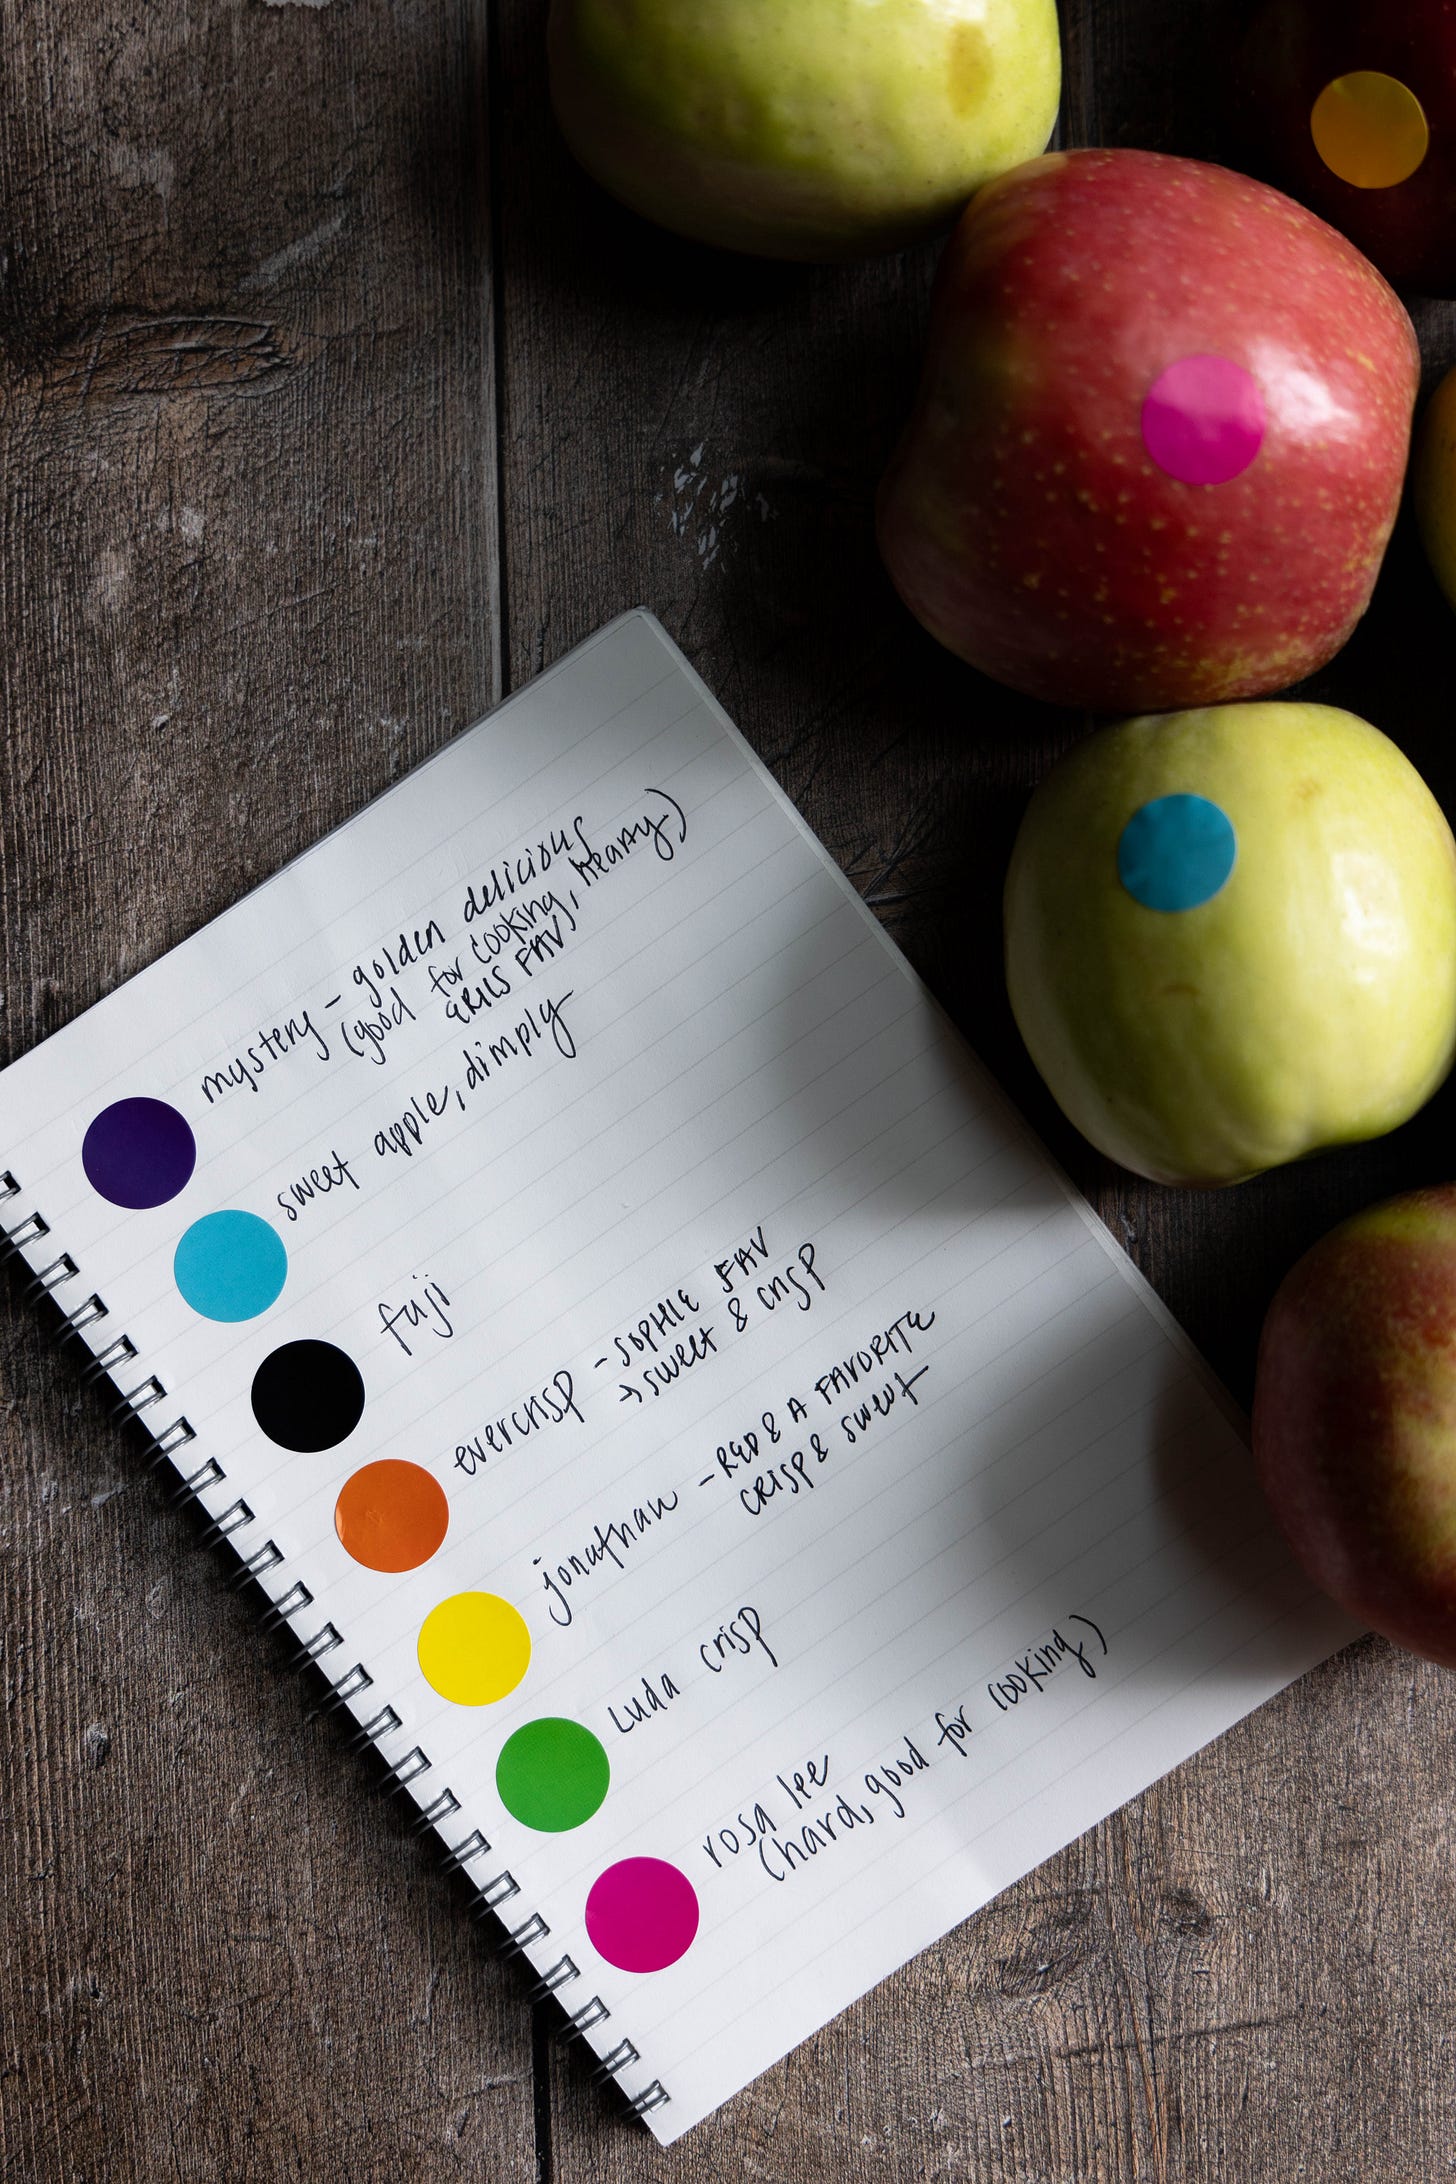 mystery - golden delicious
(good for cooking, hearty)
ERIC'S FAV
sweet apple, dimply
fuji
evercrisp - SOPHIE FAV
→ sweet & crisp
jonathan - RED & A FAVORITE
CRISP & SWEET
Luda crisp
rosa lee
(hard, good for cooking)